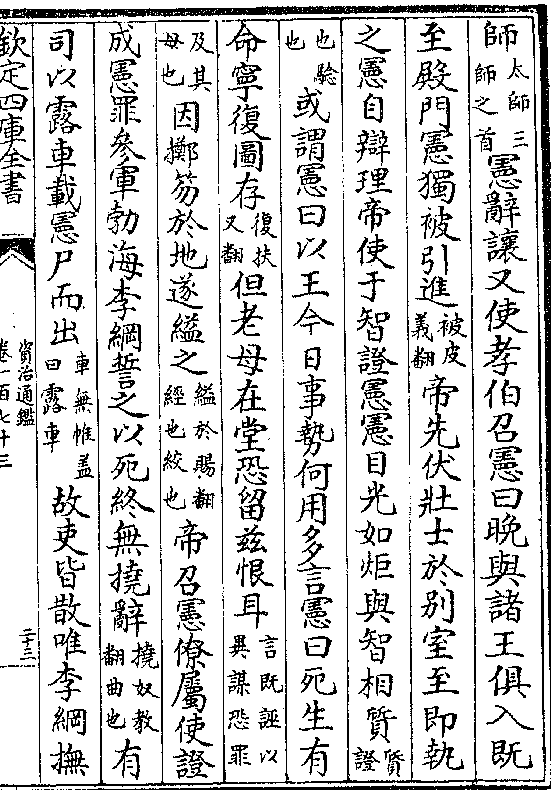 師太師三師之首憲辭讓又使孝伯召憲曰晩與諸王俱入既
至殿門憲獨被引進被皮義翻帝先伏壯士於別室至即執
之憲自辯理帝使于智證憲憲目光如炬與智相質質證
也也驗或謂憲曰以王今日事勢何用多言憲曰死生有
命寧復圖存復扶又翻但老母在堂恐留兹恨耳言既誣以異謀恐罪
及其母也因擲笏於地遂縊之縊於賜翻經也絞也帝召憲僚屬使證
成憲罪參軍勃海李綱誓之以死終無撓辭撓奴教翻曲也有
司以露車載憲尸而出車無帷盖曰露車故吏皆散唯李綱撫
欽定四庫全書
資治通鑑
卷一百七十三
二十二